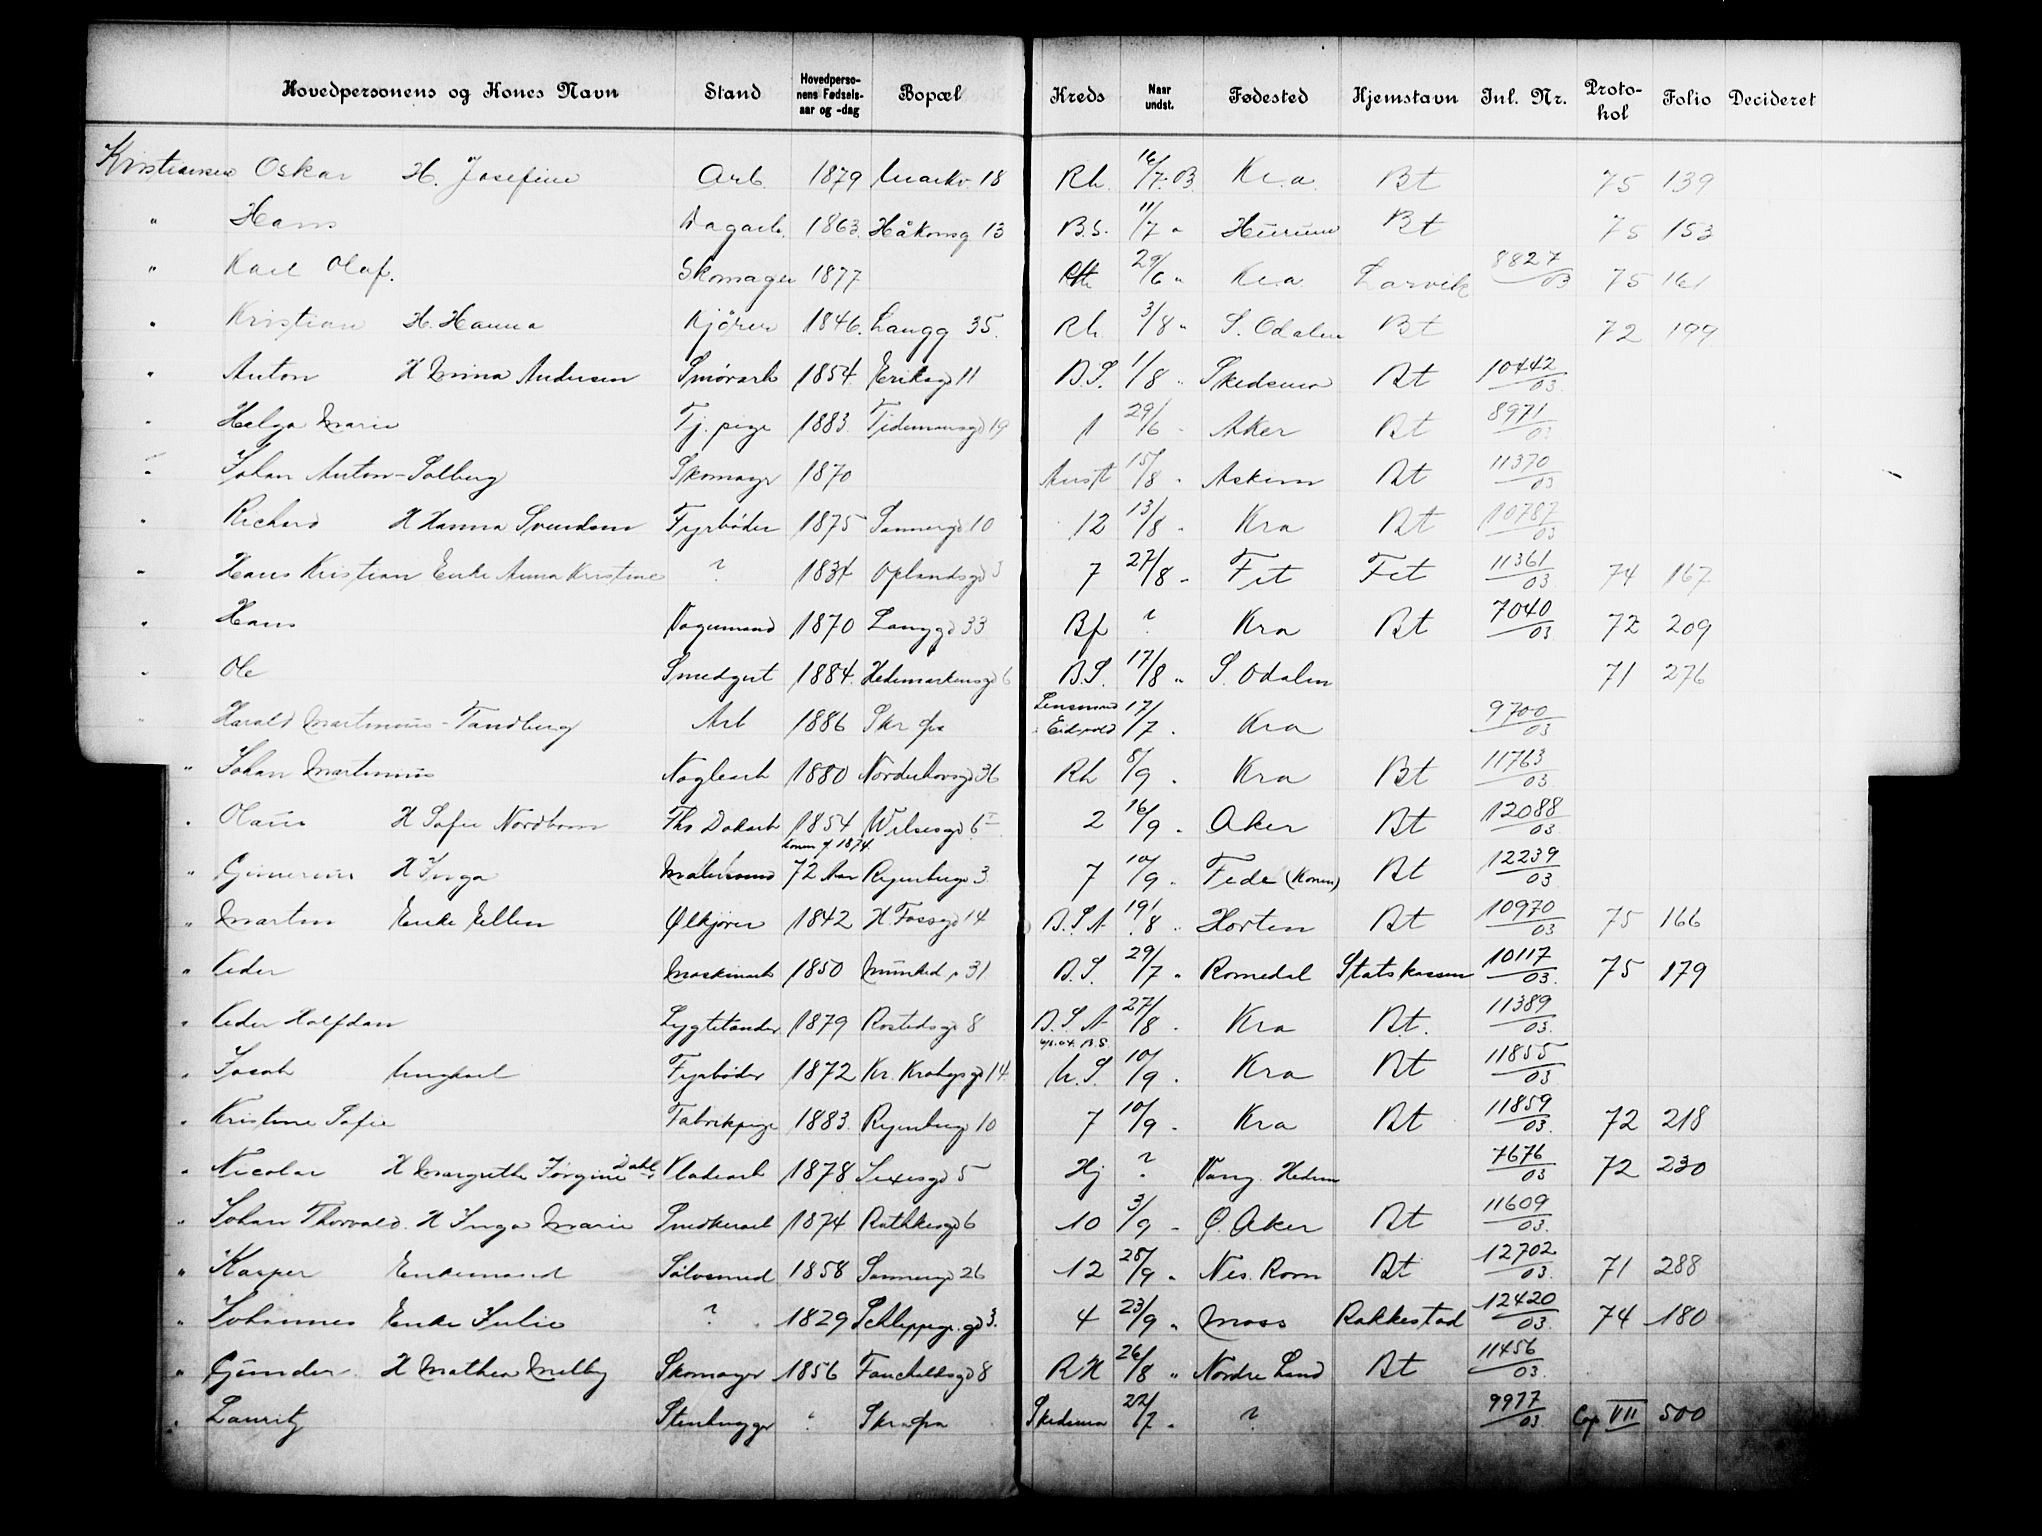 Hovedpersonens og Kones Navn Stand Hovedpersonens Fødselsaar og -dag Bopæl Kreds Naar undst. Fødested Hjemstavn Jnl. Nr. Protokol Folio Decideret
Kristiansen Oskar H. Josefine Arb. 1879 Markv. 18 Rh. 16/7-03 Kr.a. Bt 75 139
" Hans Dagarb. 1863. Håkonsg 13 B.S. 11/7 " Hurum Bt 75 153
" Karl Olaf. Skomager 1877 29/6 " Kr.a Larvik 8827/03 75 161
" Kristian H. Hanna Kjører 1846. Langg 35. Rh. 3/8 " S. Odalen Bt 72 199
" Anton H Mina Andersen Smørarb 1854 Eriksgd 11 B.S. 1/8 " Skedsmo Bt 10442/03
" Helga Marie Tj. pige 1883. Tidemansgd 19 1 29/6 " Aker Bt 8971/03
" Johan Anton-Solberg Skomager 1870 Anst 15/8 " Askim Bt 11370/03
" Richard H Hanna Svendsen Fyrbøder 1875 Sannergd 10 12 13/8 " Kra Bt 10787/03
" Hans Kristian Enke Anna Kristine ? 1834 Oplandsgd 3 7 27/8 " Fet Fet 11361/03 74 167
" Hans Vognmand 1870 Langgd 33 Bf ? Kra Bt 7040/03 72 209
" Ole Smedgut 1884. Hedemarkensgd 6 B.S. 17/8 " S. Odalen 71 276
" Harald Martinius-Tandberg Arb 1886 Skr. fra Lensmand i Eidsvold 17/7 " Kra 9700/03
" Johan Martinius Naglearb 1880 Norderhovsgd 36 Rh 8/9 " Kra Bt 11763/03
" Olaus H Sofie Nordbom Ths Dakarb 1854 Wilsesgd 6 I 2 16/9 " Aker Bt 12088/03
" Gunerius H Inga Malersvend 72 Aar konen f. 1874. Ryenbergd 3 7 10/9 " Fede (Konen) Bt 12239/03
" Martin Enke Ellen Ølkjører 1842 H. Fossgd 14 B.S A 19/8 " Horten Bt 10970/03 75 166
" Peder Maskinarb 1850 Munked. v 31 B.S. 29/7 " Romedal Statskassen 10117/03 75 179
" Peder Halfdan Lygtetænder 1879 Rostedsgd 8 B.S A 27/8 " Kra Bt. 11389/03
" Josah Ungkarl Fyrbøder 1872 Kr. Krohgsgd 14. U.S. 10/9 " Kra Bt 11855/03
" Kristine Sofie Fabrikpige 1883. Ryenbergd 10 7 10/9 " Kra Bt 11859/03 72 218
" Nicolai H Margrethe Jørgine Dahl Pladearb 1878 Sexesgd 5 Hj ? Vang. Hedm 7676/03 72 230
" Johan Thorvald. H Inga Marie Snedkerarb 1874 Rathkesgd 6 10 3/9 " Ø. Aker Bt 11609/03
" Kasper Enkemand Sølvsmed 1858 Sannergd 26 12 28/9 " Nes. Rom Bt 12702/03 71 288
" Johannes Enke Julie ? 1829 Schleppegr. gd 3. 4 23/9 " Moss Rakkestad 12420/03 74 180
" Gunder H Mathea Melby Skomager 1856 Fauchaldsgd 8 RH 26/8 " Nordre Land Bt 11456/03
" Lauritz Stenhugger " Skr. fra Skedsmo 22/7 " ? 9977/03 Cop VII 500